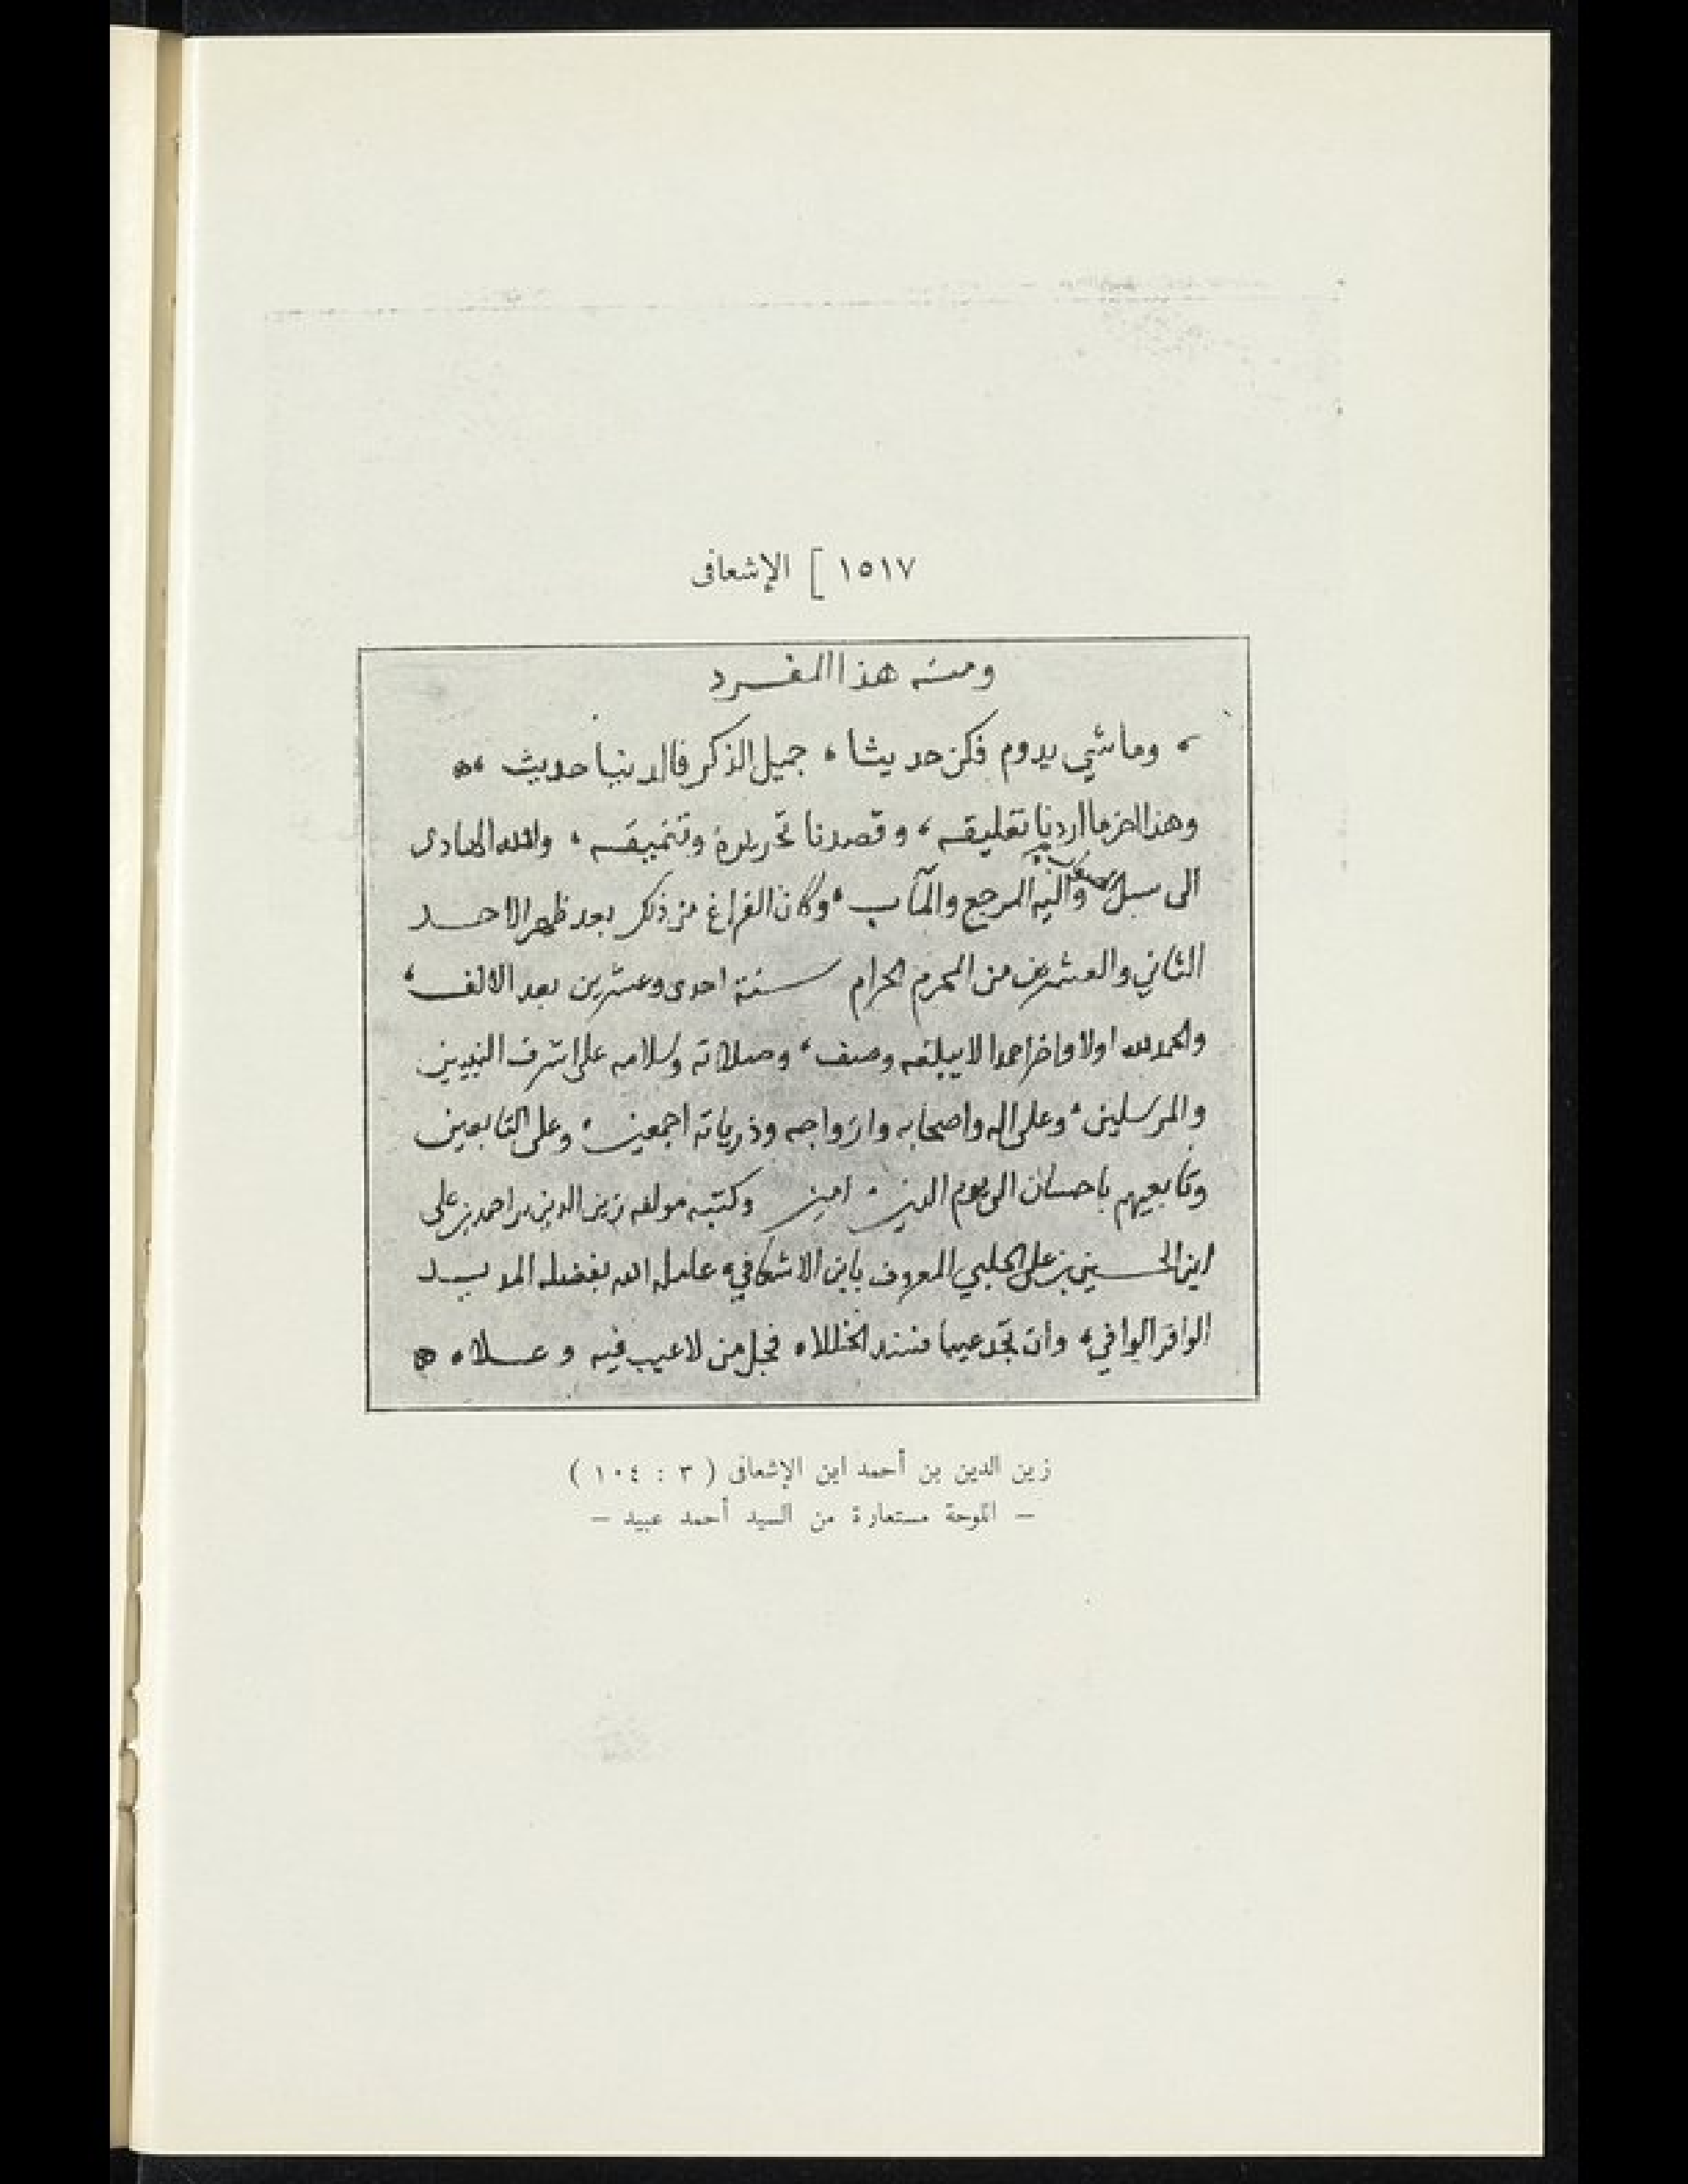 ١٥١٧ [ الإشعافى
ومنه هذا المفرد
، وما شي يدوم فكن حديثا ، جميل الذكر فالدنيا حديث ،ه
وهذا اخر ما اردنا تعليقه ، وقصدنا تحريره وتنميقه ، والله الهادى
الى سبيل واليه المرجع والمآب ، وكان الفراغ من ذلك بعد ظهر الاحد
الثاني والعشرين من المحرم الحرام سنة احدى وعشرين بعد الالف ،
والحمد لله اولا واخرا حمدا لا يبلغه وصف ، وصلاته وسلامه على اشرف النبيين
والمرسلين ، وعلى اله واصحابه وازواجه وذرياته اجمعين ، وعلى التابعين
وتابعيهم باحسان الى يوم الدين ، امين وكتبه مولفه زين الدين بن احمد بن على
ابن الحسين بن على الحلبي المعروف بابن الاشعافي ، عامله الله بفضله المديد
الوافر الوافي ، وان تجد عيبا فسد الخللا ه فجل من لا عيب فيه وعلا ه
زين الدين بن أحمد ابن الإشعافى ( ٣ : ١٠٤ )
— اللوحة مستعارة من السيد أحمد عبيد —